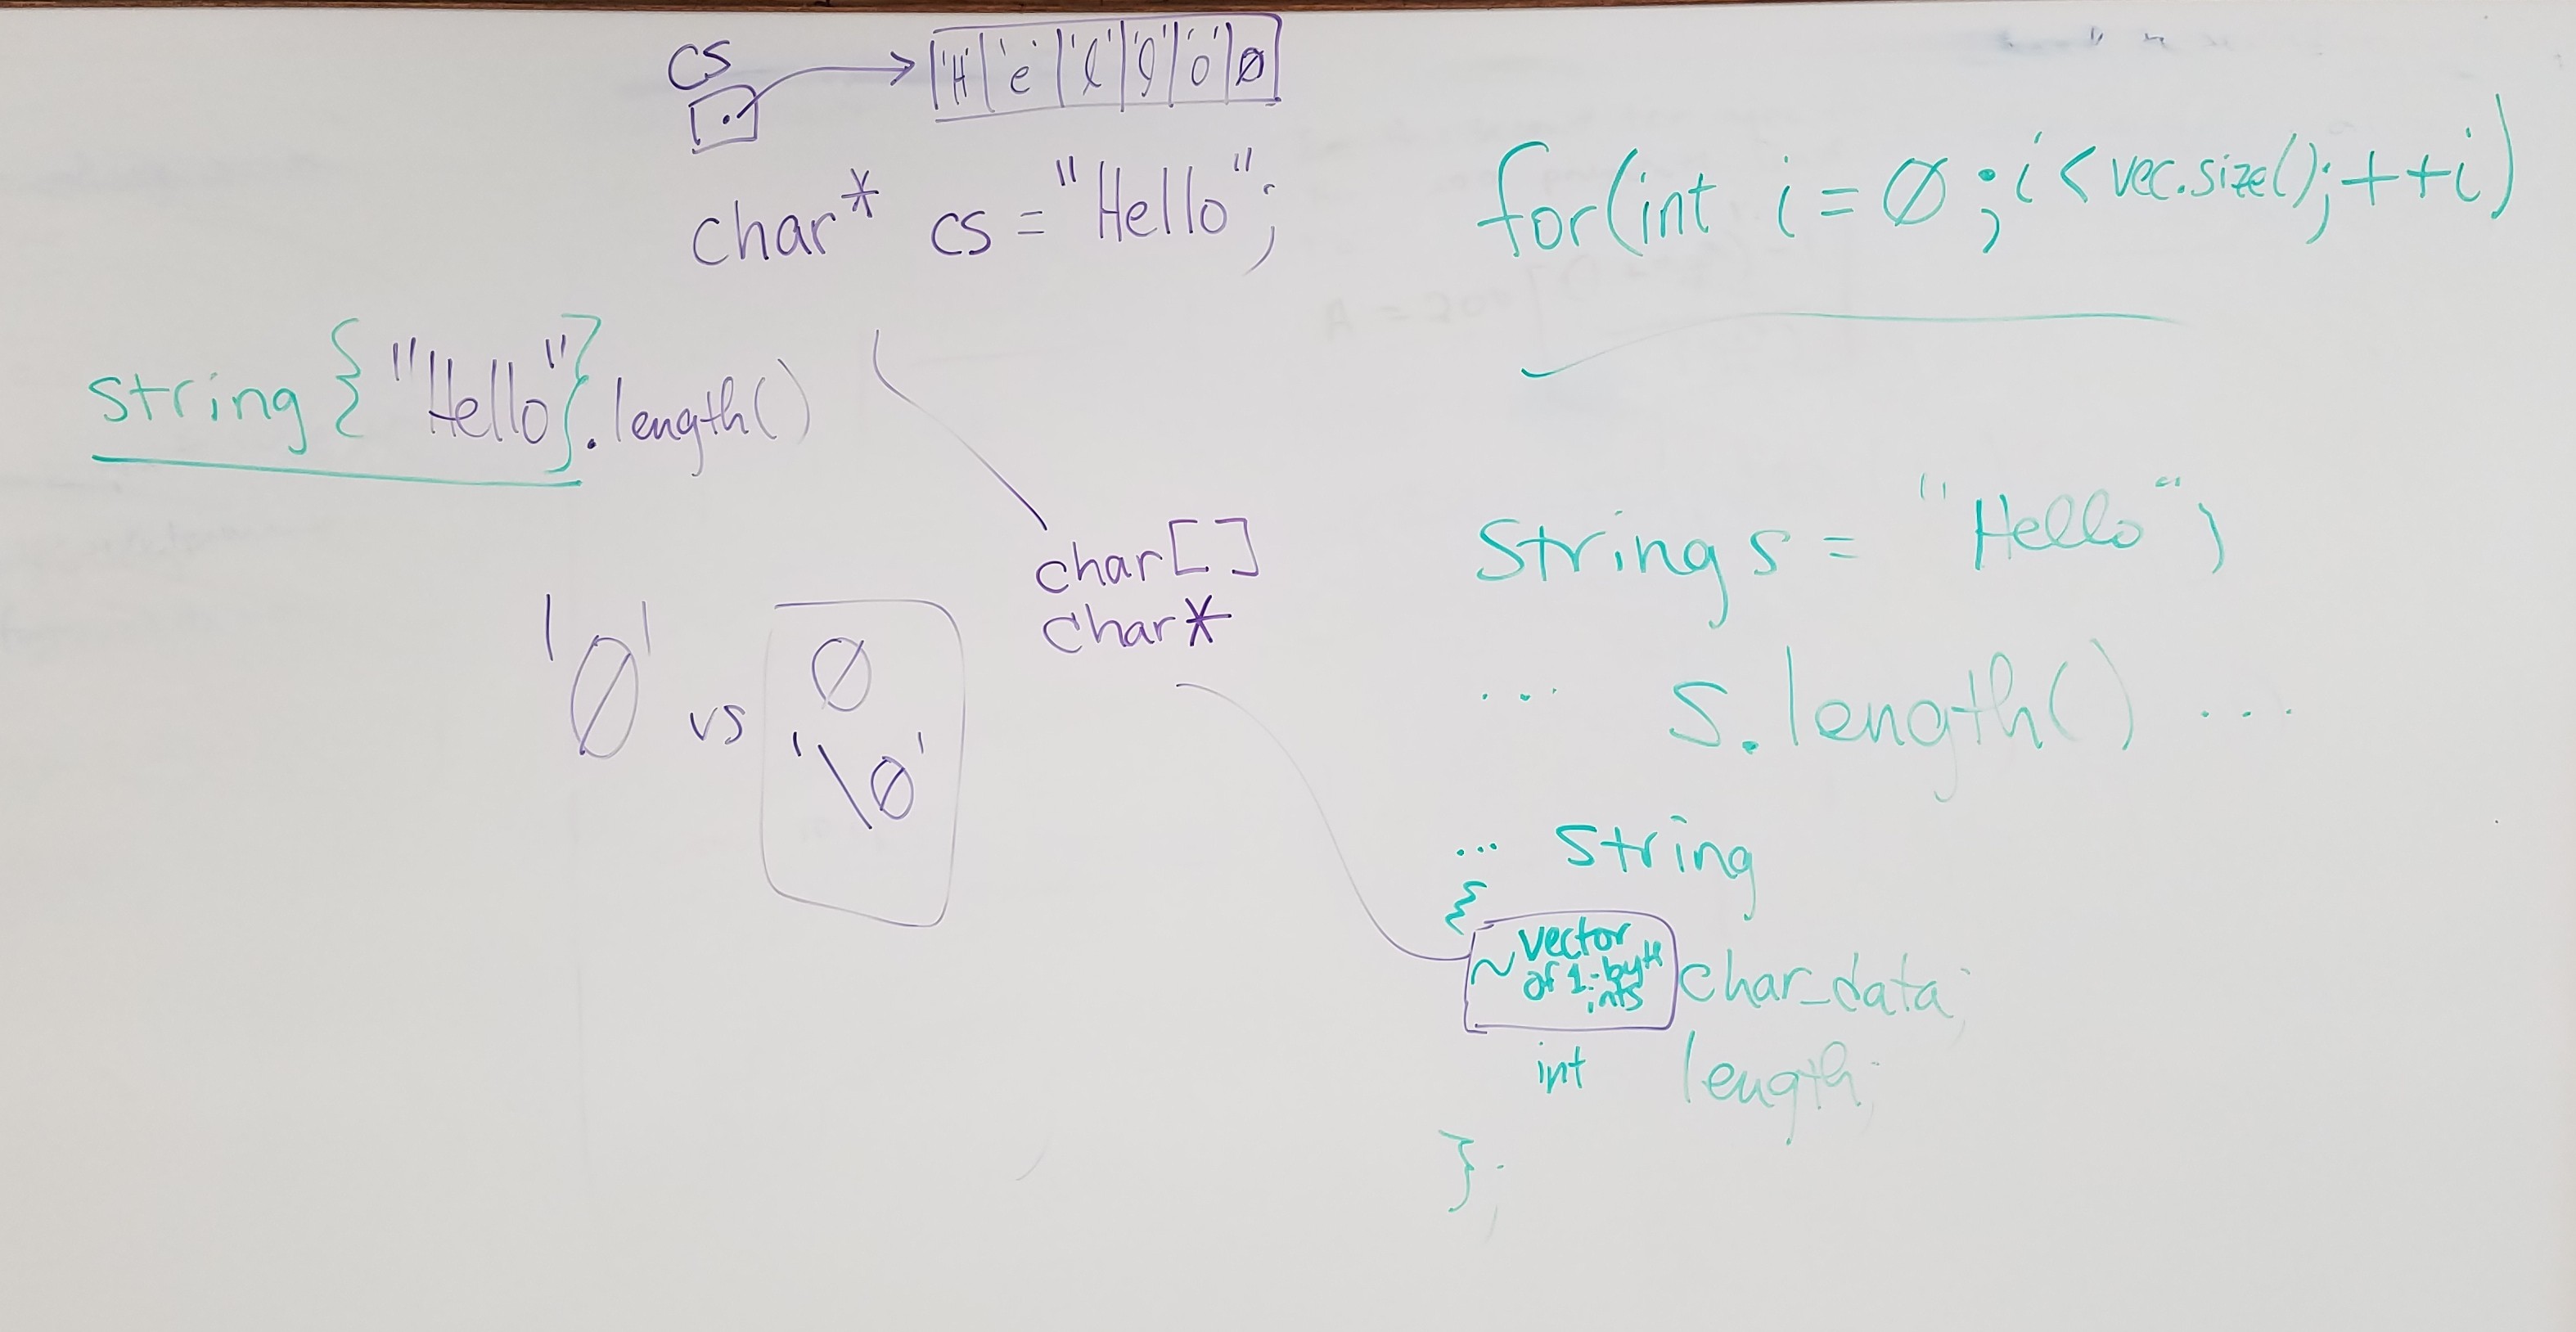 cs
'H' 'e' 'l' 'l' 'o' Ø
char* cs = "Hello";
string {"Hello"}.length()
char[]
char*
'Ø' vs Ø
'\Ø'
for(int i = Ø; i < vec.size(); ++i)
String s = "Hello";
... s.length() ...
... string
{
~ vector of 1-byte ints char_data;
int length;
};